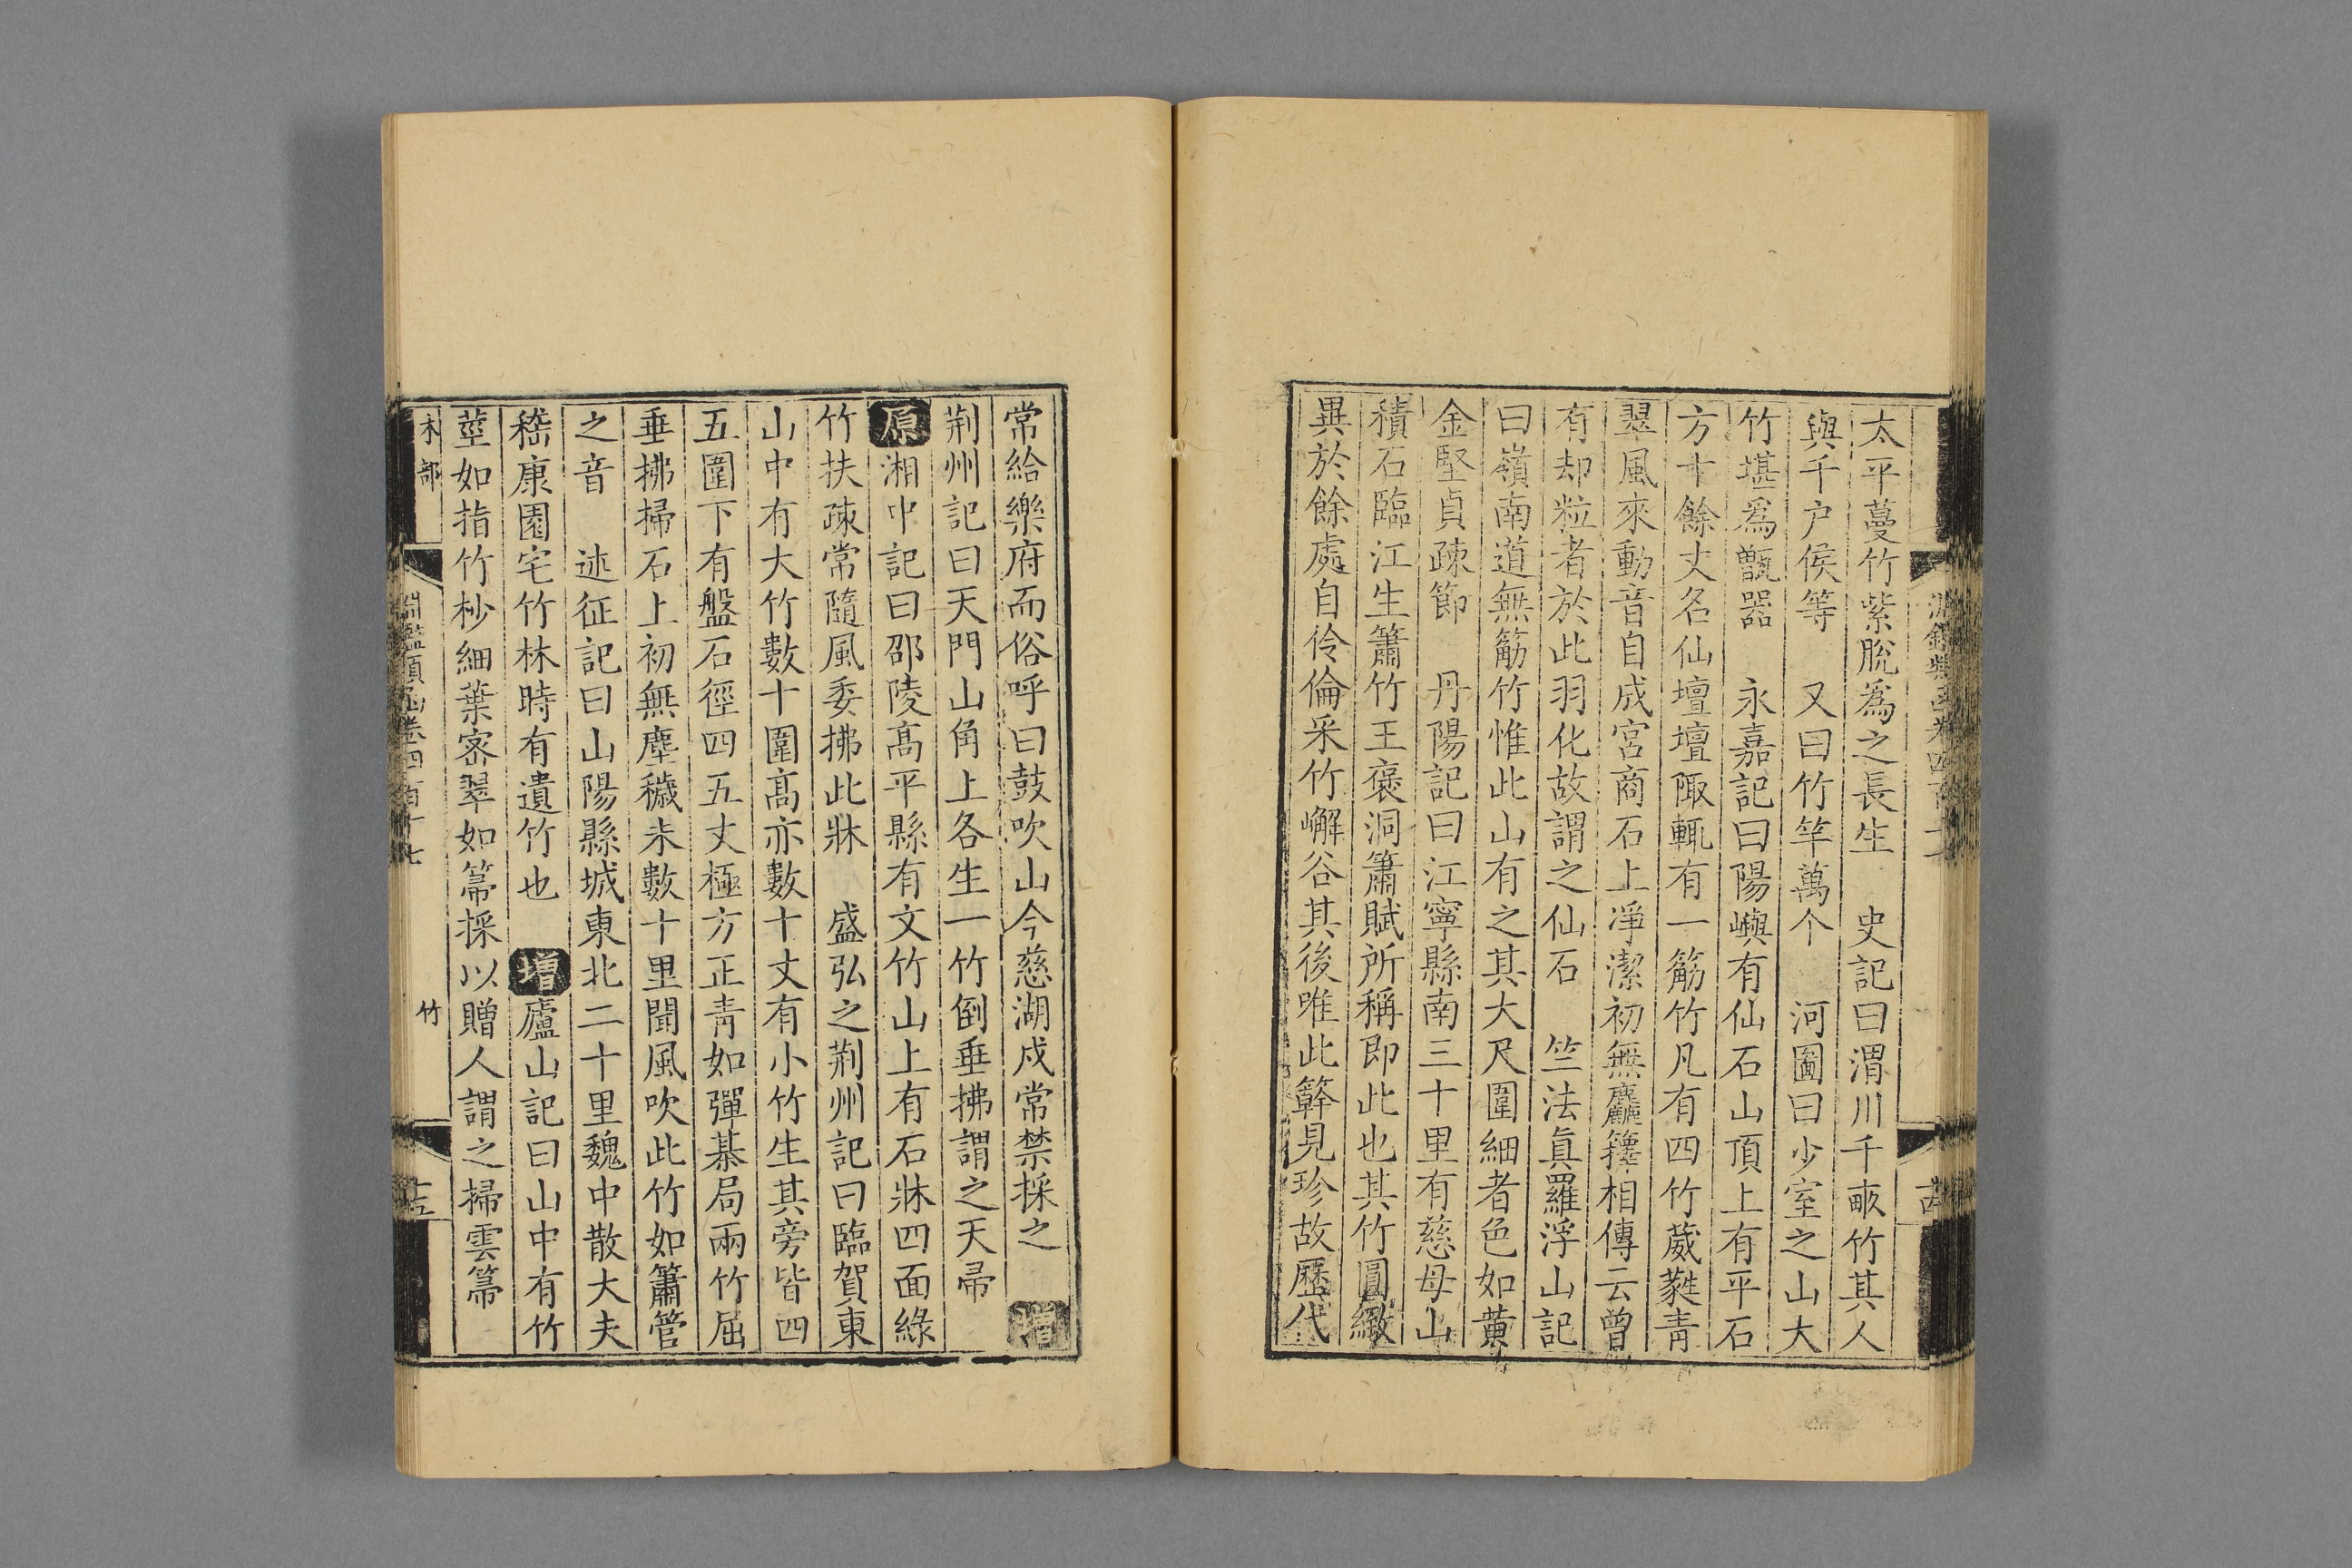 太平蔓竹紫脫爲之長生　史記曰渭川千畝竹其人
與千户侯等　又曰竹竿萬个　河圖曰少室之山大
竹堪爲甑器　永嘉記曰陽嶼有仙石山頂上有平石
方十餘丈名仙壇壇陬輒有一筋竹凡有四竹葳蕤青
翠風來動音自成宮商石上凈潔初無麤籜相傳云曾
有却粒者於此羽化故謂之仙石　竺法眞羅浮山記
曰嶺南道無筋竹惟此山有之其大尺圍細者色如黄
金堅貞疎節　丹陽記曰江寧縣南三十里有慈母山
積石臨江生簫竹王褒洞簫賦所稱即此也其竹圓緻
異於餘處自伶倫采竹嶰谷其後唯此簳見珍故歷代
常給樂府而俗呼曰鼓吹山今慈湖戍常禁採之　增
荆州記曰天門山角上各生一竹倒垂拂謂之天帚
原湘中記曰邵陵高平縣有文竹山上有石牀四面綠
竹扶疎常隨風委拂此牀　盛弘之荆州記曰臨賀東
山中有大竹數十圍高亦數十丈有小竹生其旁皆四
五圍下有盤石徑四五丈極方正青如彈棊局兩竹屈
垂拂掃石上初無塵穢未數十里聞風吹此竹如簫管
之音　述征記曰山陽縣城東北二十里魏中散大夫
嵇康園宅竹林時有遺竹也　增廬山記曰山中有竹
莖如指竹杪細葉密翠如箒採以贈人謂之掃雲箒
木部　淵鑑類函卷四百十七　竹　十五